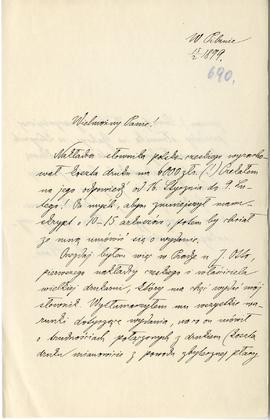 W Pilznie
13/2 1899.
690.
Wielmożny Panie!
Nakładca słownika polsko-czeskiego wyracho-
wał koszta druku na 6000 złr. (!) Czekałem
na jego odpowiedź od 14. Stycznia do 9. Lu-
tego! On myśli, abym zmniejszył manu-
skrypt o 10-15 arkuszów, potem by chciał
ze mną umówić się o wydanie.
byłem więc w Pradze u J. Otto,
pierwszego nakładcy czeskiego i właściciela
wielkiej drukarni, który ma chęć wydać mój
słownik. Wytłumaczyłem mu wszystkie wa-
runki dotyczące wydania, on mówił
o trudnościach połączonych z drukiem (koszta
druku mianowicie z powodu zbytecznej płacy